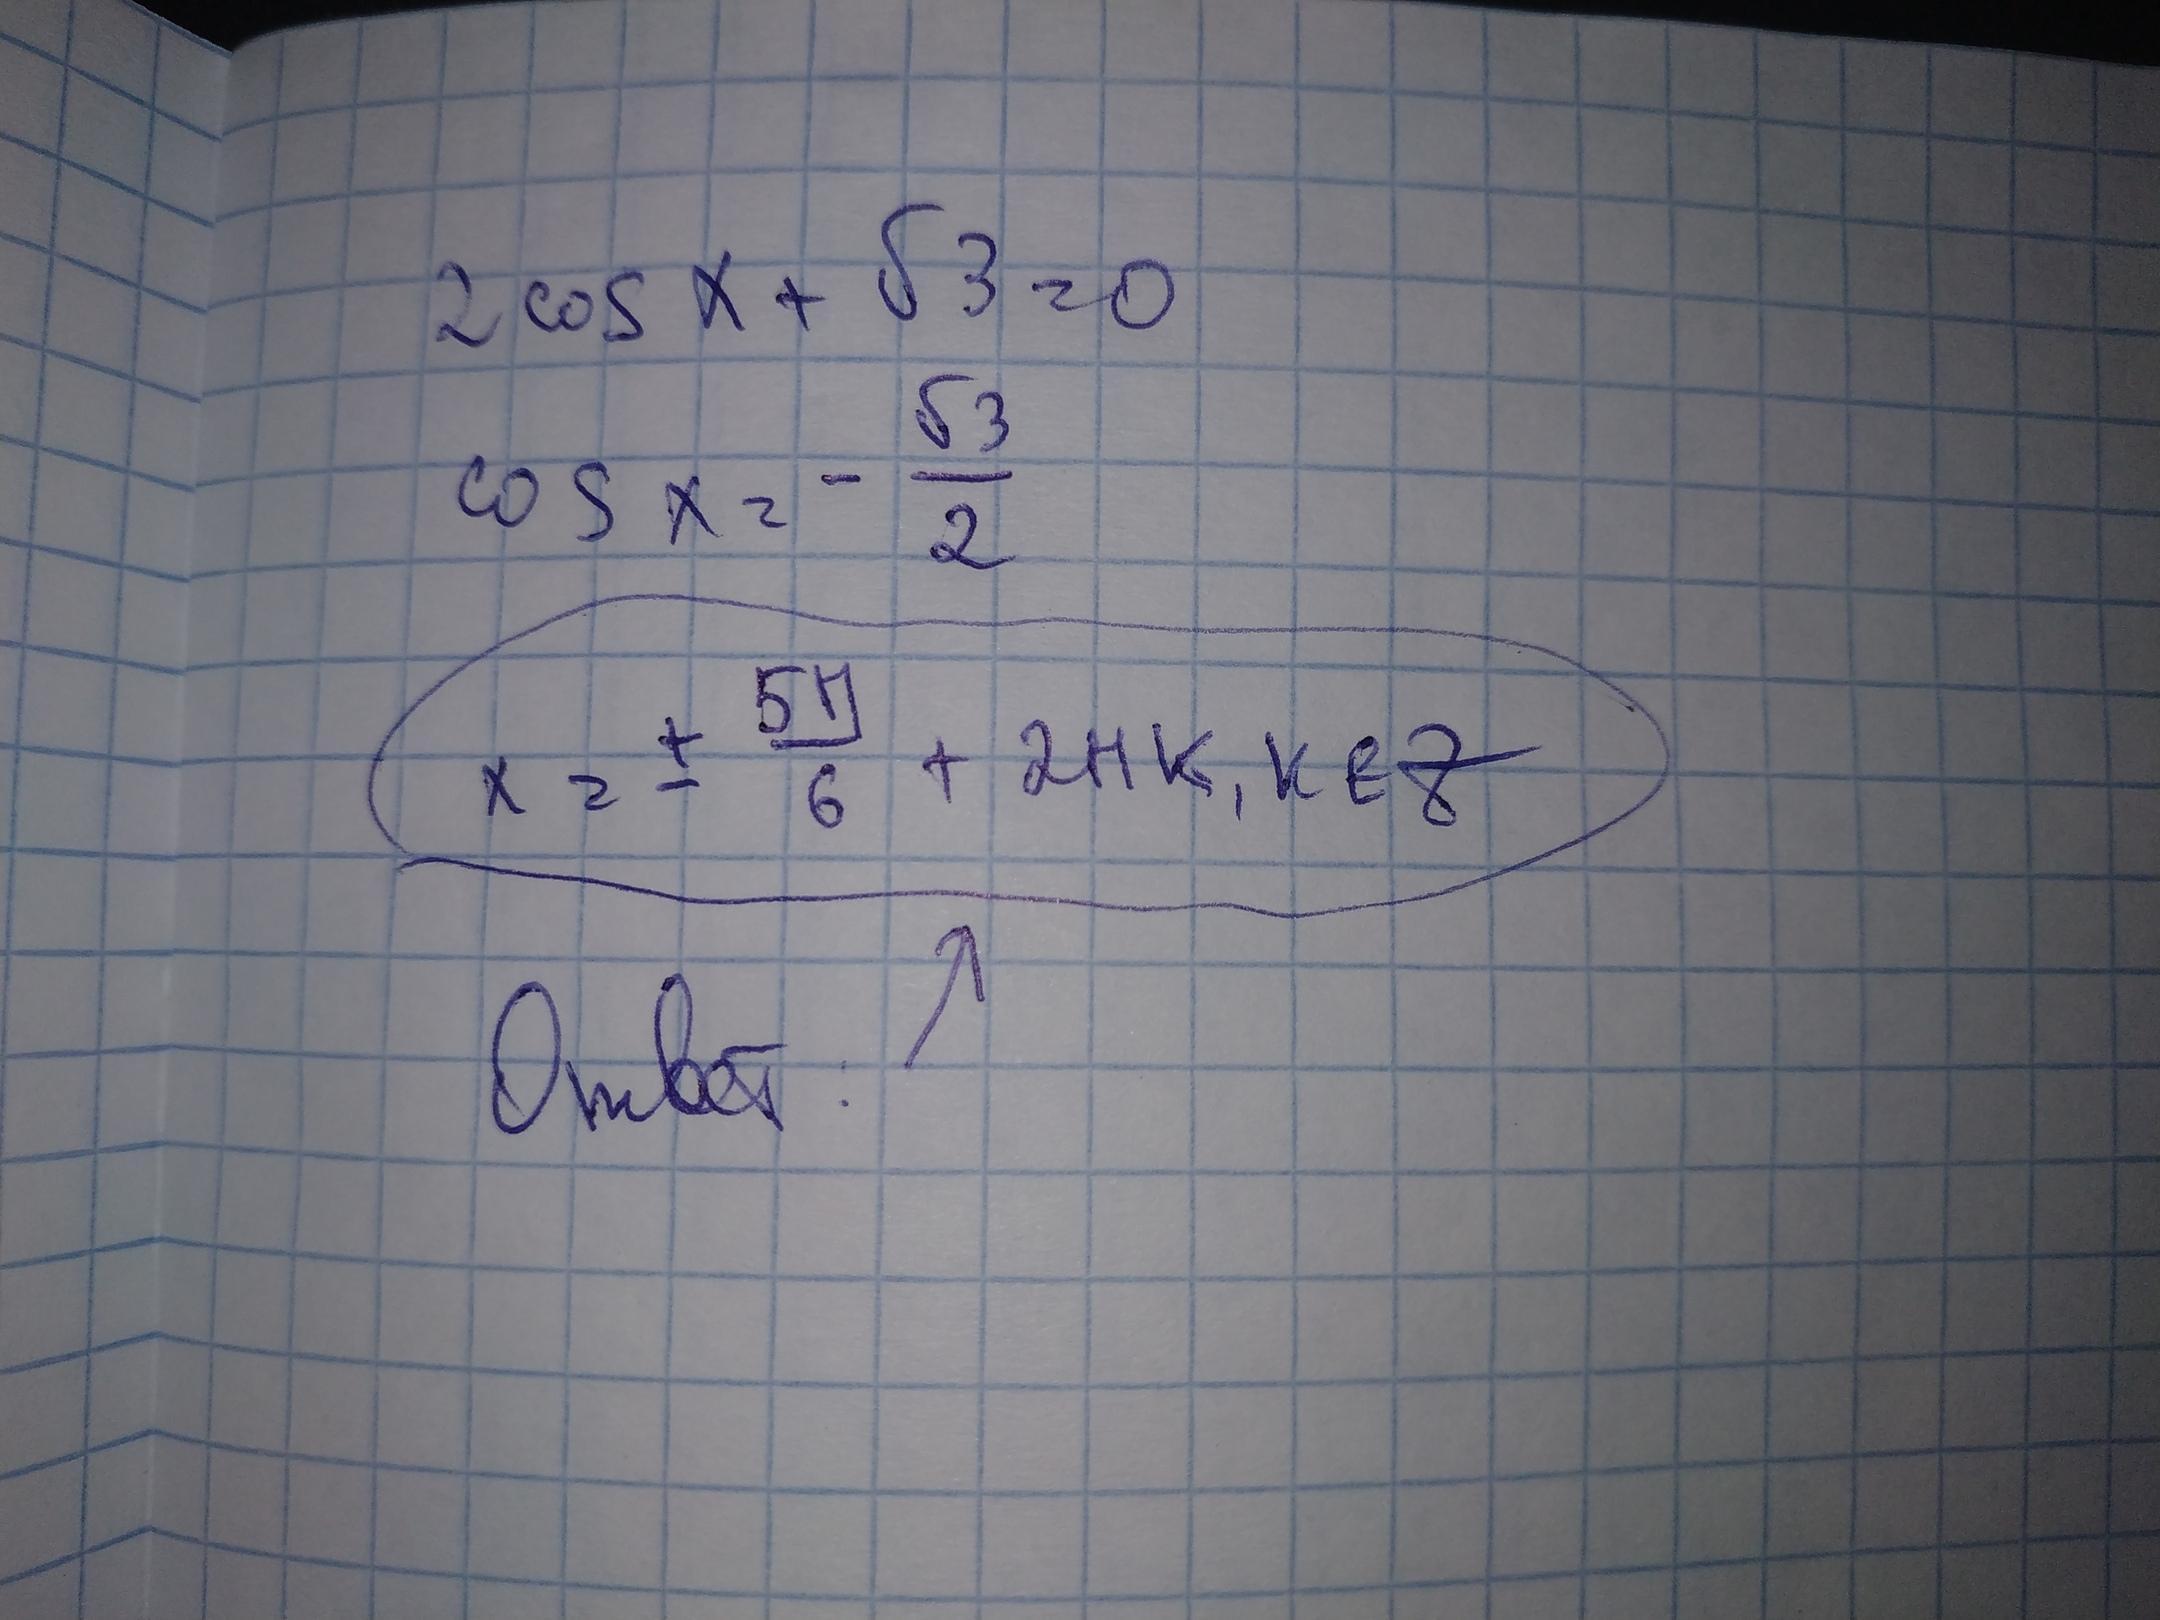 2 cos x + √3 = 0
cos x = - √3/2
x = ± 5π/6 + 2πk, k ∈ Z
Ответ: